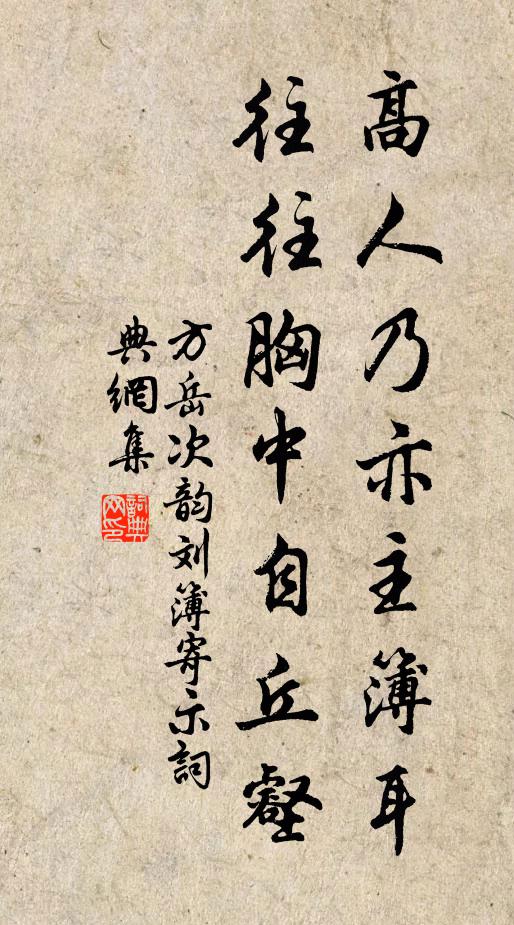 高人乃亦主簿耳
往往胸中自丘壑
方岳次韵刘簿寄示詞
典網集
詞典網印